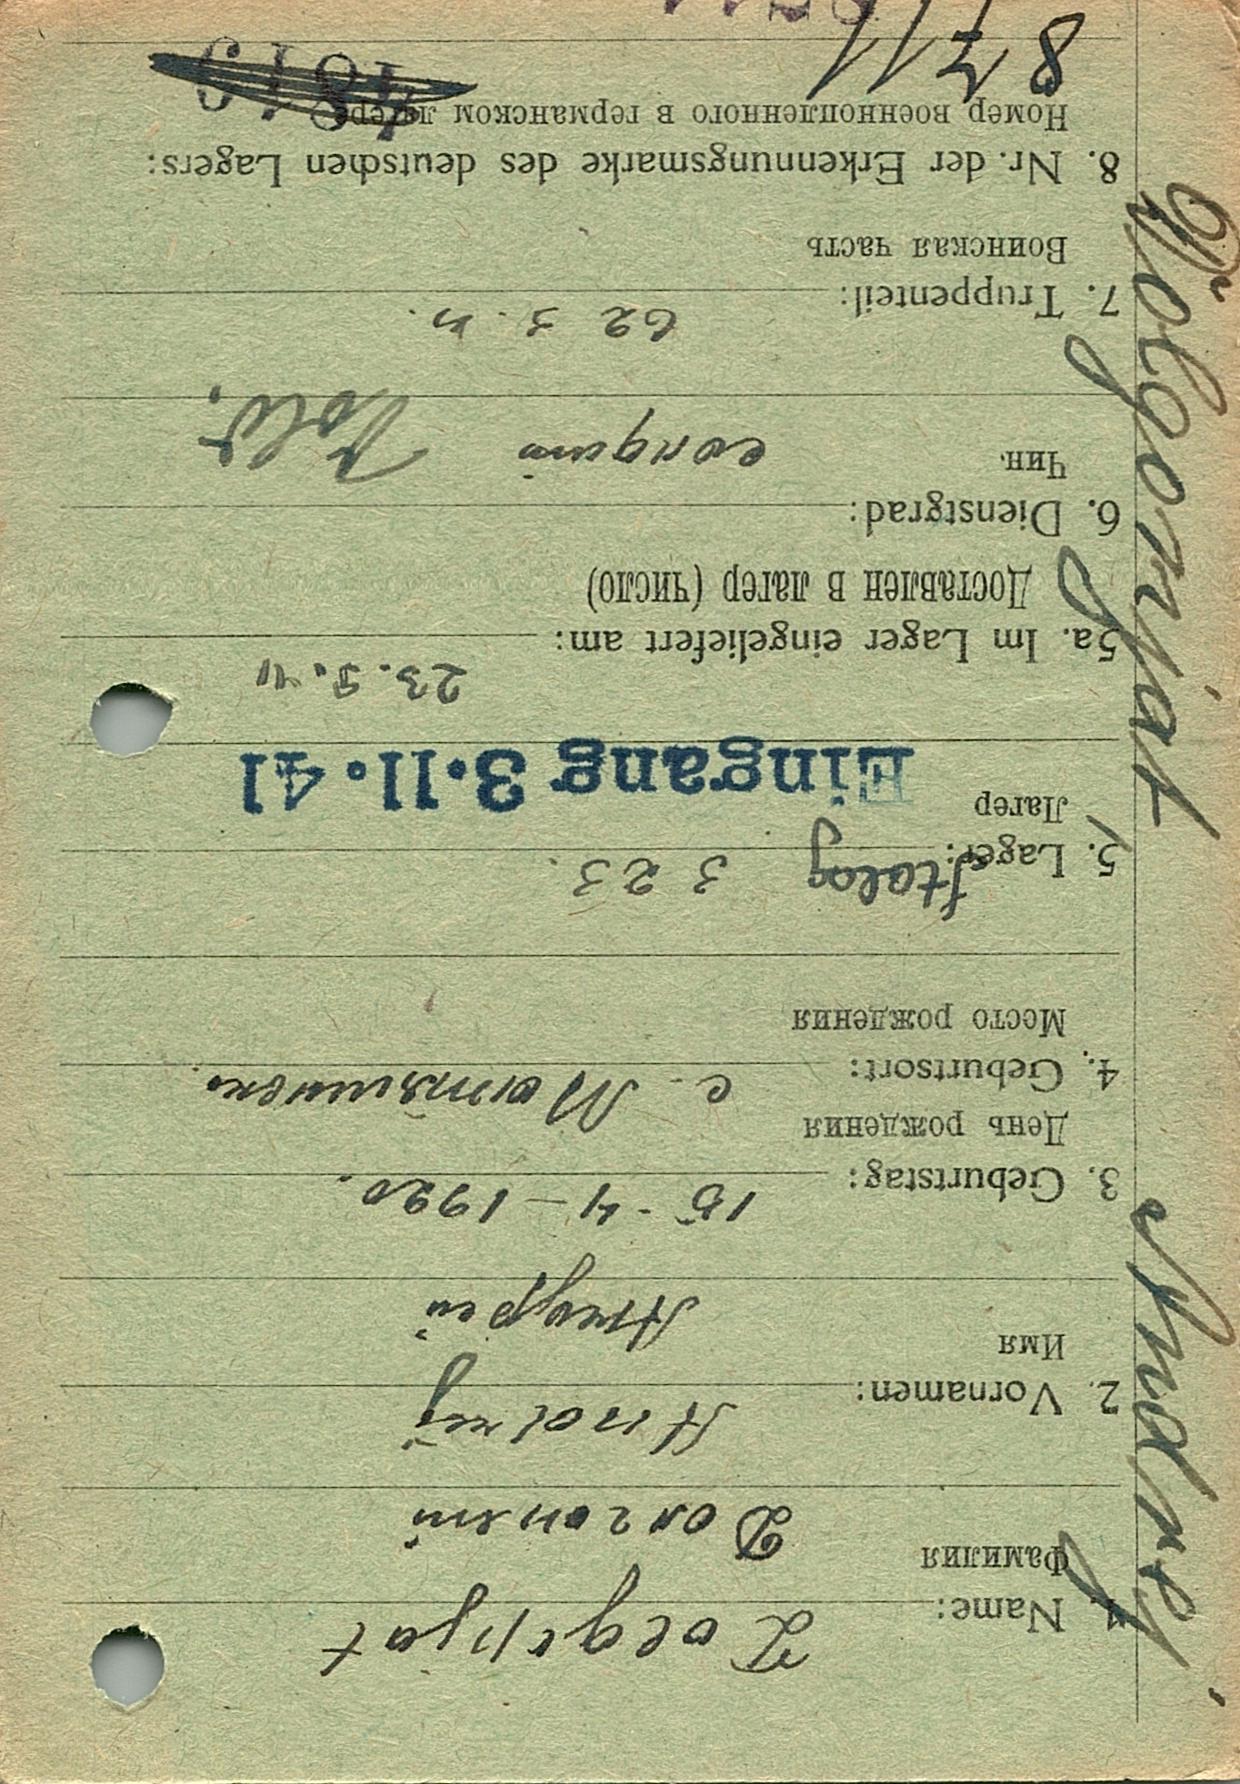 Dolgopjat, Andrej.
1. Name: Dolgopjat
Фамилия
2. Vornamen: Andrej
Имя Андрей
3. Geburtstag: 15-4-1920.
День рождения
4. Geburtsort: с.
Место рождения
5. Lager: Stalag 323.
Лагер
Eingang 3.11.41
5a. Im Lager eingeliefert am: 23.5.41
Доставлен в лагер (число)
6. Dienstgrad: солдат Sold.
Чин.
7. Truppenteil: 62 з.п.
Воинская часть
8. Nr. der Erkennungsmarke des deutschen Lagers:
Номер военнопленного в германском лагере
8711